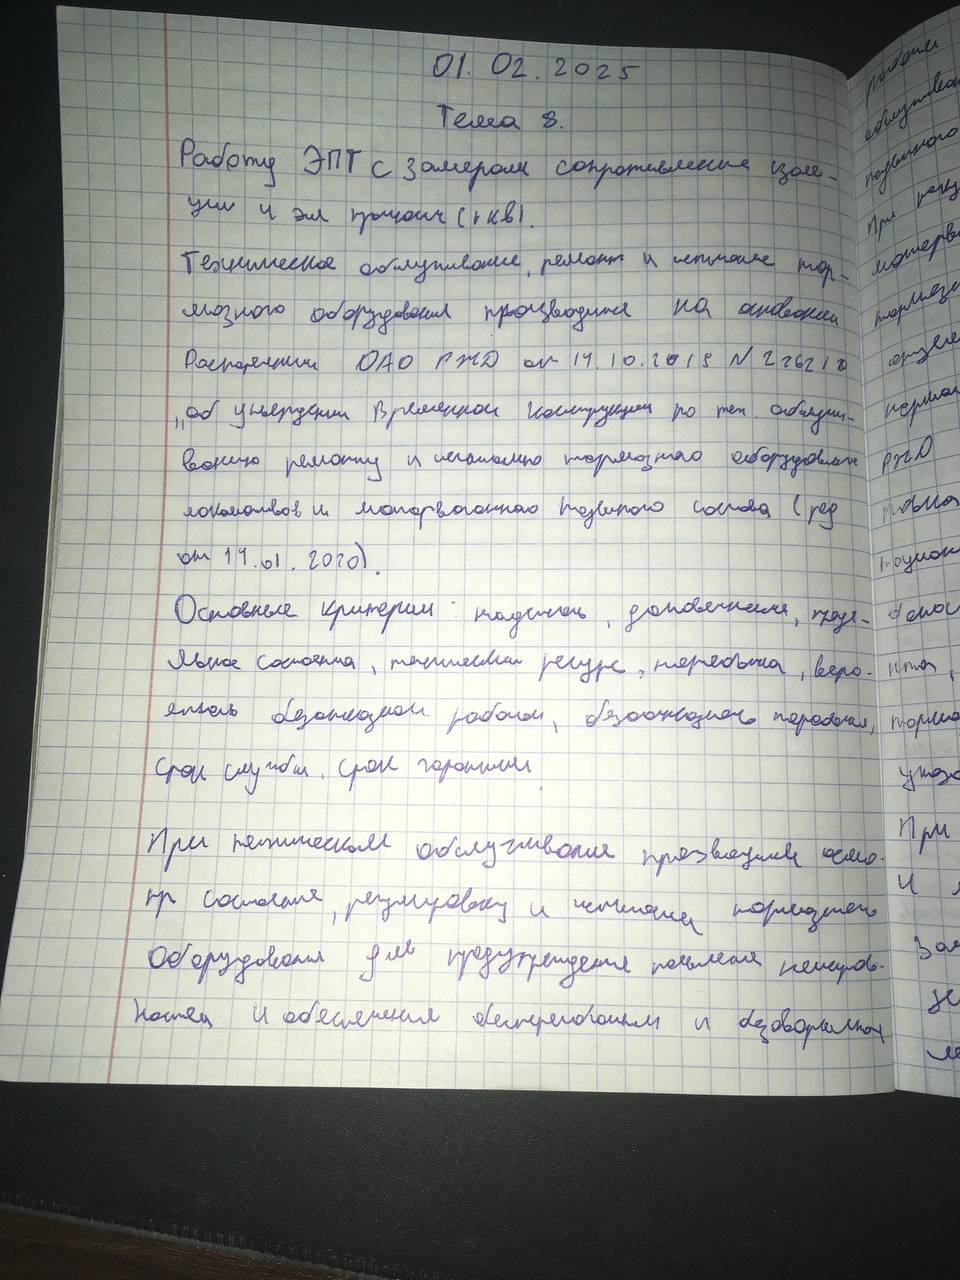 01.02.2025
Тема 8.
Работу ЭПТ с замером сопротивления изоля-
ции и эл (1 кв).
Техническое обслуживание, ремонт и испытание тор-
мозного оборудования производится на основании
Распоряжения ОАО РЖД от 14.10.2019 N 2262/р
„об утверждении Временной Инструкции по тех. обслужи-
ванию ремонту и испытанию тормозного оборудования
локомотивов и моторвагонного подвижного состава (ред
от 14.01.2020).
Основные критерии: надежность, долговечность, преде-
льное состояние, технический ресурс, наработка, веро-
ятность безотказной работы, безотказность наработки,
срок службы, срок гарантии
При техническом обслуживании производим осмо-
тр состояния, регулировку и испытания тормозного
оборудования для предупреждения появления неисправ-
ностей и обеспечения бесперебойной и безаварийной
Работы
обслуживан
подвижного
При
моторва
тормозн
РЖД
При
и